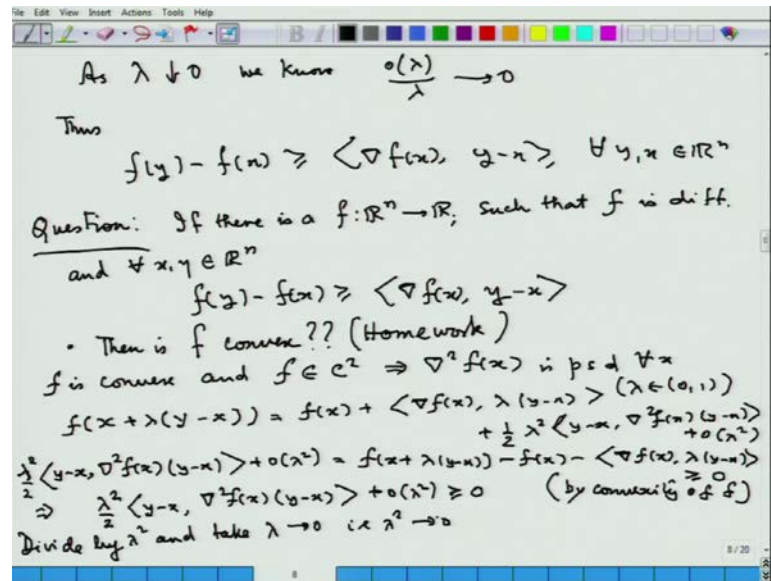 File Edit View Insert Actions Tools Help
As λ ↓ 0 we know o(λ)/λ → 0
Thus
f(y) - f(x) ≥ ⟨∇f(x), y-x⟩, ∀ y, x ∈ ℝⁿ
Question: If there is a f: ℝⁿ → ℝ, such that f is diff.
and ∀ x, y ∈ ℝⁿ
f(y) - f(x) ≥ ⟨∇f(x), y-x⟩
• Then is f convex?? (Homework)
f is convex and f ∈ C² ⇒ ∇²f(x) is psd ∀x
f(x + λ(y-x)) = f(x) + ⟨∇f(x), λ(y-x)⟩ (λ ∈ (0,1))
+ 1/2 λ² ⟨y-x, ∇²f(x)(y-x)⟩
+ o(λ²)
λ²/2 ⟨y-x, ∇²f(x)(y-x)⟩ + o(λ²) = f(x + λ(y-x)) - f(x) - ⟨∇f(x), λ(y-x)⟩
≥ 0
⇒ λ²/2 ⟨y-x, ∇²f(x)(y-x)⟩ + o(λ²) ≥ 0 (by convexity of f)
Divide by λ² and take λ → 0 i.e λ² → 0
8/20
8